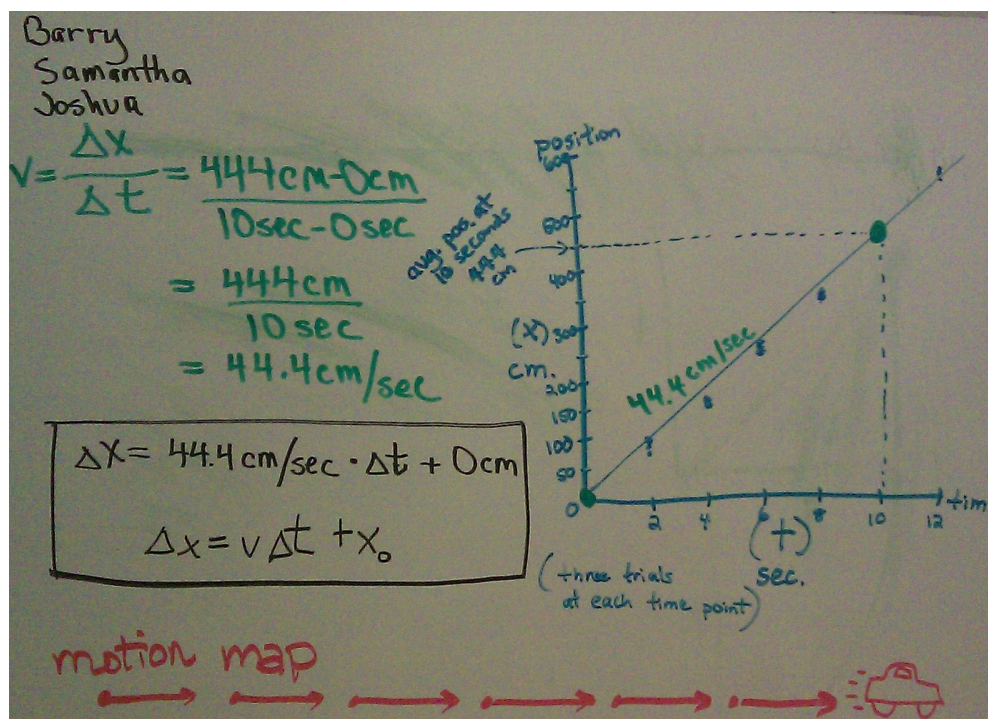 Barry
Samantha
Joshua
V = Δx/Δt = 444cm-0cm/10sec-0sec
= 444cm/10sec
= 44.4cm/sec
Δx = 44.4 cm/sec · Δt + 0cm
Δx = vΔt + x₀
position
600
500
400
300
200
150
100
50
0
(x)
cm.
avg. pos. at
10 seconds
444
cm
44.4 cm/sec
2 4 6 8 10 12
tim
(t)
sec.
(three trials
at each time point)
motion map